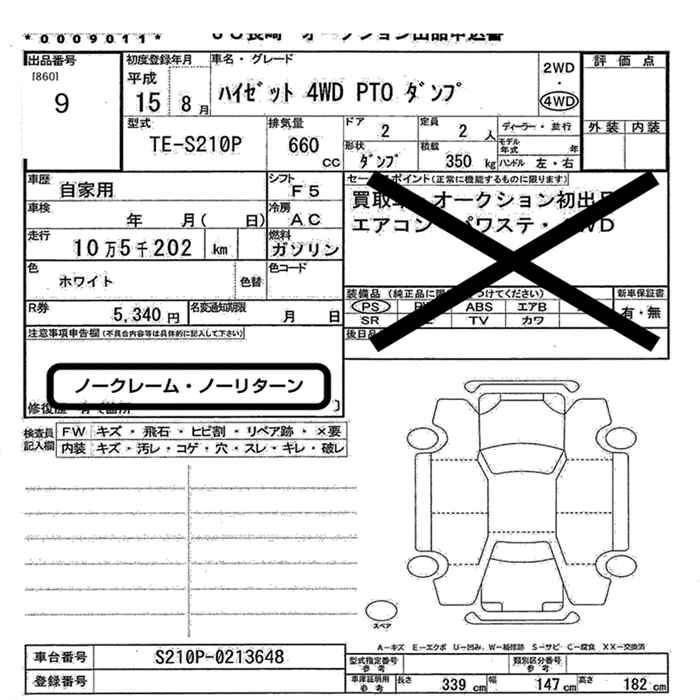 *0009011*
ＪＵ長崎 オークション出品申込書
出品番号
[860]
9
初度登録年月
平成
15 8月
車名・グレード
ﾊｲｾﾞｯﾄ 4WD PTO ﾀﾞﾝﾌﾟ
2WD
・
4WD
評価点
外装 内装
型式
TE-S210P
排気量
660
CC
ドア
2
定員
2 人
ディーラー・並行
モデル年式 年
形状
ﾀﾞﾝﾌﾟ
積載
350 kg
ハンドル 左・右
車歴
自家用
シフト
F5
セールスポイント(正常に機能するものに限ります)
買取車 オークション初出品
エアコン パワステ・4WD
車検
年 月( 日)
冷房
AC
走行
10万5千202 km
燃料
ガソリン
色
ホワイト
色替
色コード
装備品
PS ABS エアB
SR TV カワ
新車保証書
有・無
R券
5,340 円
名変通知期限
月 日
後日品
注意事項申告欄(不具合内容等は具体的に記入して下さい)
ノークレーム・ノーリターン
検査員記入欄
FW キズ・飛石・ヒビ割・リペア跡・×要
内装 キズ・汚レ・コゲ・穴・スレ・キレ・破レ
スペア
A－キズ E－エクボ U－凹み W－補修跡 S－サビ C－腐食 XX－交換済
車台番号 S210P-0213648
型式指定番号 参考
類別区分番号 参考
登録番号
車庫証明用 参考
長さ 339 cm 幅 147 cm 高さ 182 cm